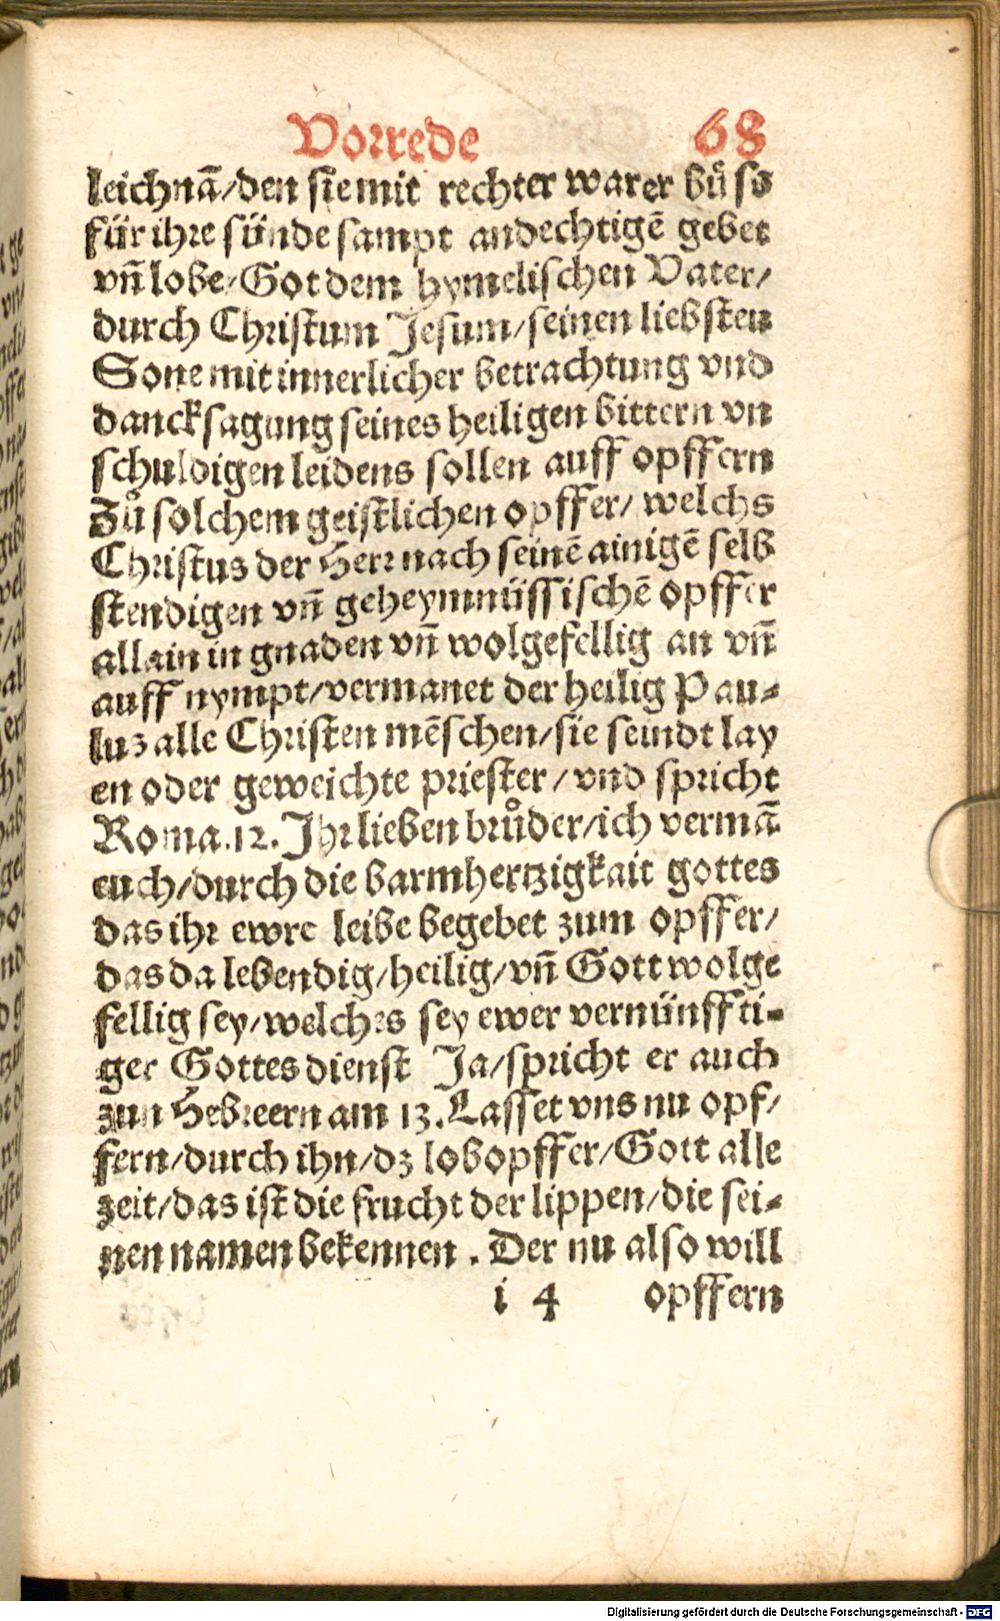 Vorrede 68
leichnã/den sie mit rechter warer bůss
für ihre sünde sampt andechtigẽ gebet
vñ lobe/Got dem hymelischen Vater/
durch Christum Jesum/seinen liebsten
Sone mit innerlicher betrachtung vnd
dancksagung seines heiligen bittern vn
schuldigen leidens sollen auff opffern
Zů solchem geistlichen opffer/ welchs
Christus der Herr nach seinẽ ainigẽ selb
stendigen vñ geheymnüssischẽ opffer
allain in gnaden vñ wolgefellig an vñ
auff nympt/vermanet der heilig Pau-
lus alle Christen mẽschen/sie seindt lay
en oder geweichte priester/vnd spricht
Roma.12. Ihr lieben brůder/ich vermã
euch/durch die barmhertzigkait gottes
das ihr ewre leibe begebet zum opffer/
das da lebendig/heilig/vñ Gott wolge
fellig sey/welches sey ewer vernünffti-
ger Gottes dienst Ja/spricht er auch
zun Hebreern am 13. Lasset vns nu opf/
fern/durch ihn/dz lobopffer/Gott alle
zeit/das ist die frucht der lippen/die sei-
nen namen bekennen. Der nu also will
i 4 opffern
Digitalisierung gefördert durch die Deutsche Forschungsgemeinschaft - DFG